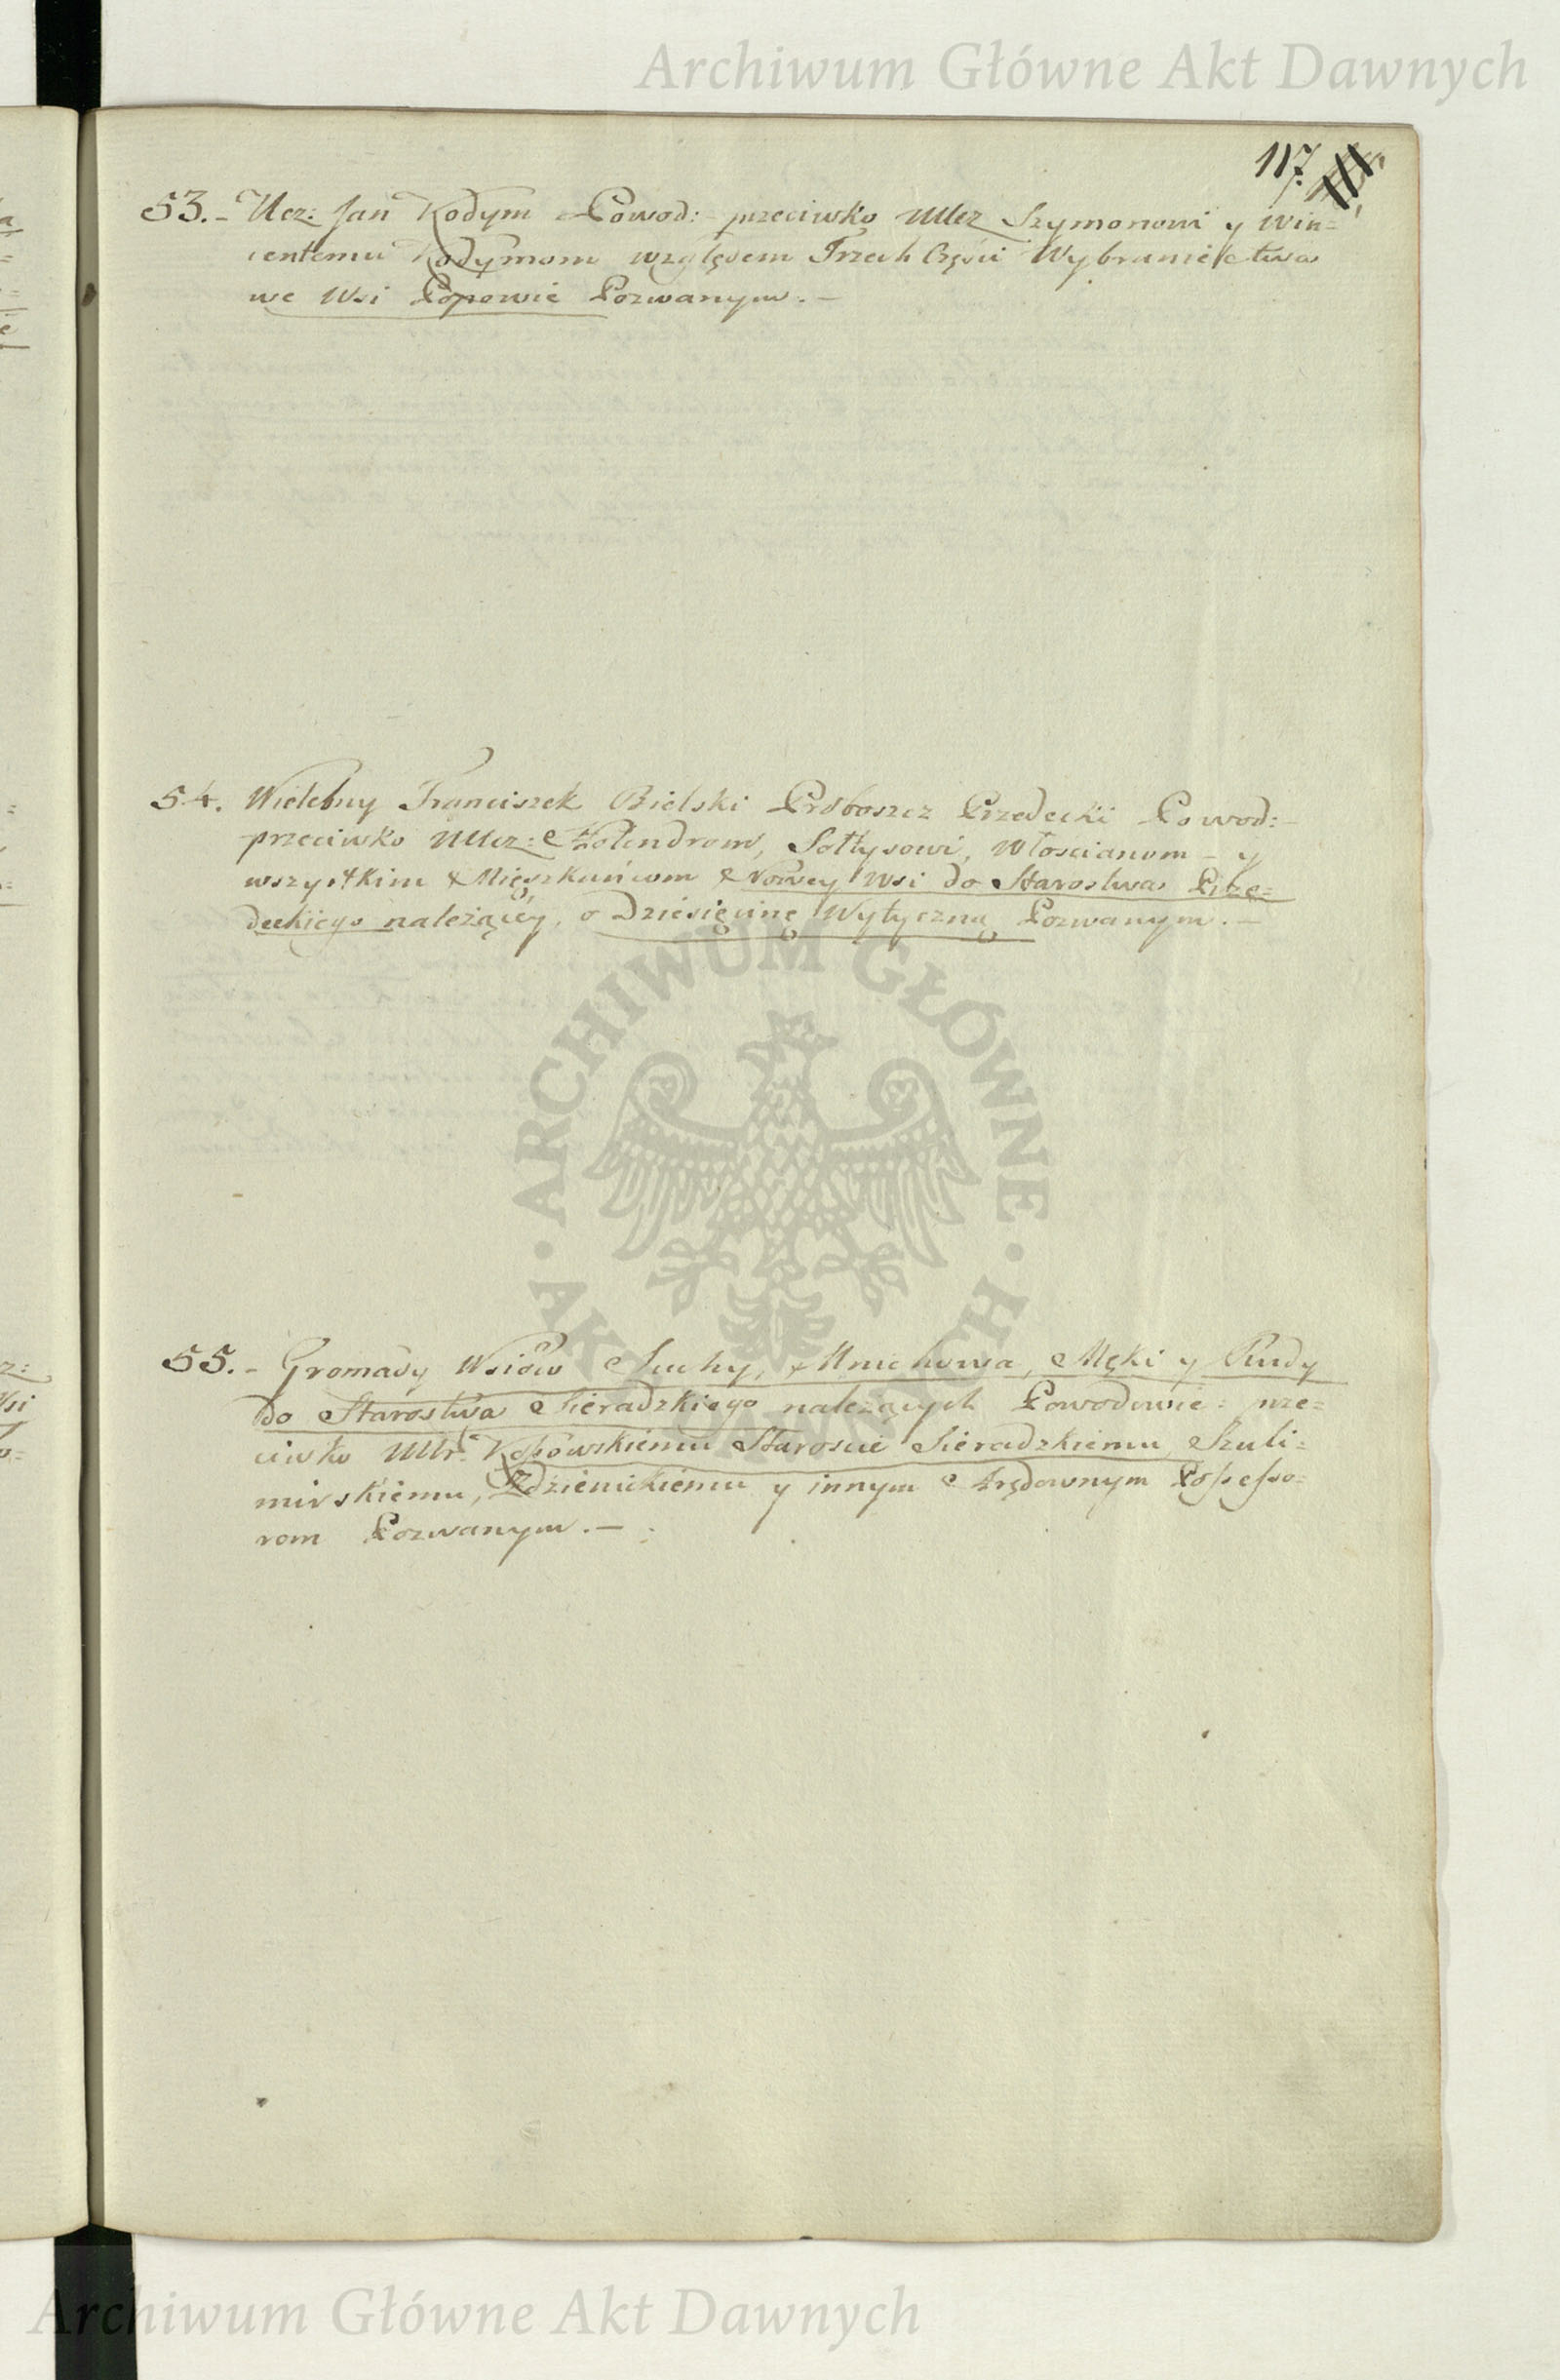 Archiwum Główne Akt Dawnych
117.
53.- Ucz: Jan Kodym Powod: przeciwko UUcz Szymonowi y Win=
centemu Kodymom względem Trzech Części Wybraniectwa
we Wsi Popowie Pozwanym.-
54. Wielebny Franciszek Bielski Proboszcz Przedecki Powod:-
przeciwko UUcz: Holendrom, Sołtysowi, Włoscianom - y
wszystkim Mieyszkańcom Nowey Wsi do Starostwa Prze=
deckiego należącey, o Dziesięcinę Wytyczną Pozwanym.-
ARCHIWUM GŁÓWNE AKT DAWNYCH
55.- Gromady Wsiów Suchy, Mnichowa, Męki y Rudy
do Starostwa Sieradzkiego należących Powodowie: prze=
ciwko UUr: Kossowskiemu Staroscie Sieradzkiemu Szuli=
mirskiemu, Zdzienickiemu y innym Possesso=
rom Pozwanym.-
Archiwum Główne Akt Dawnych